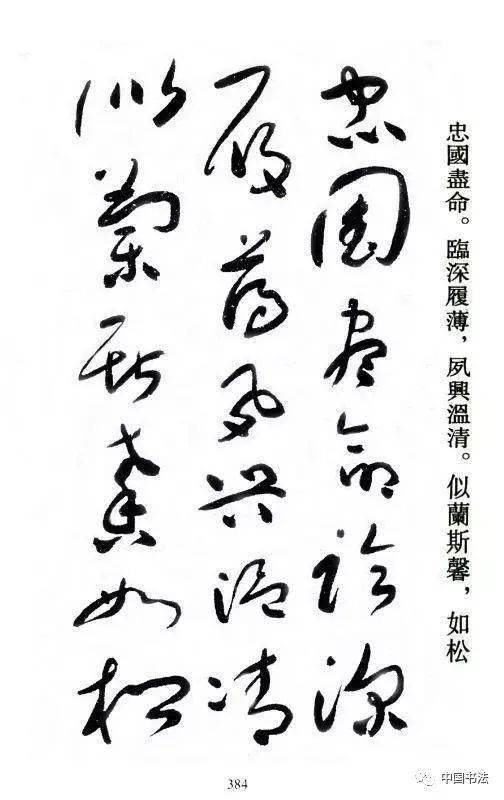 忠國盡命。臨深履薄，夙興溫清。似蘭斯馨，如松
忠國盡命臨深
履薄夙興溫清
似蘭斯馨如松
384
中国书法